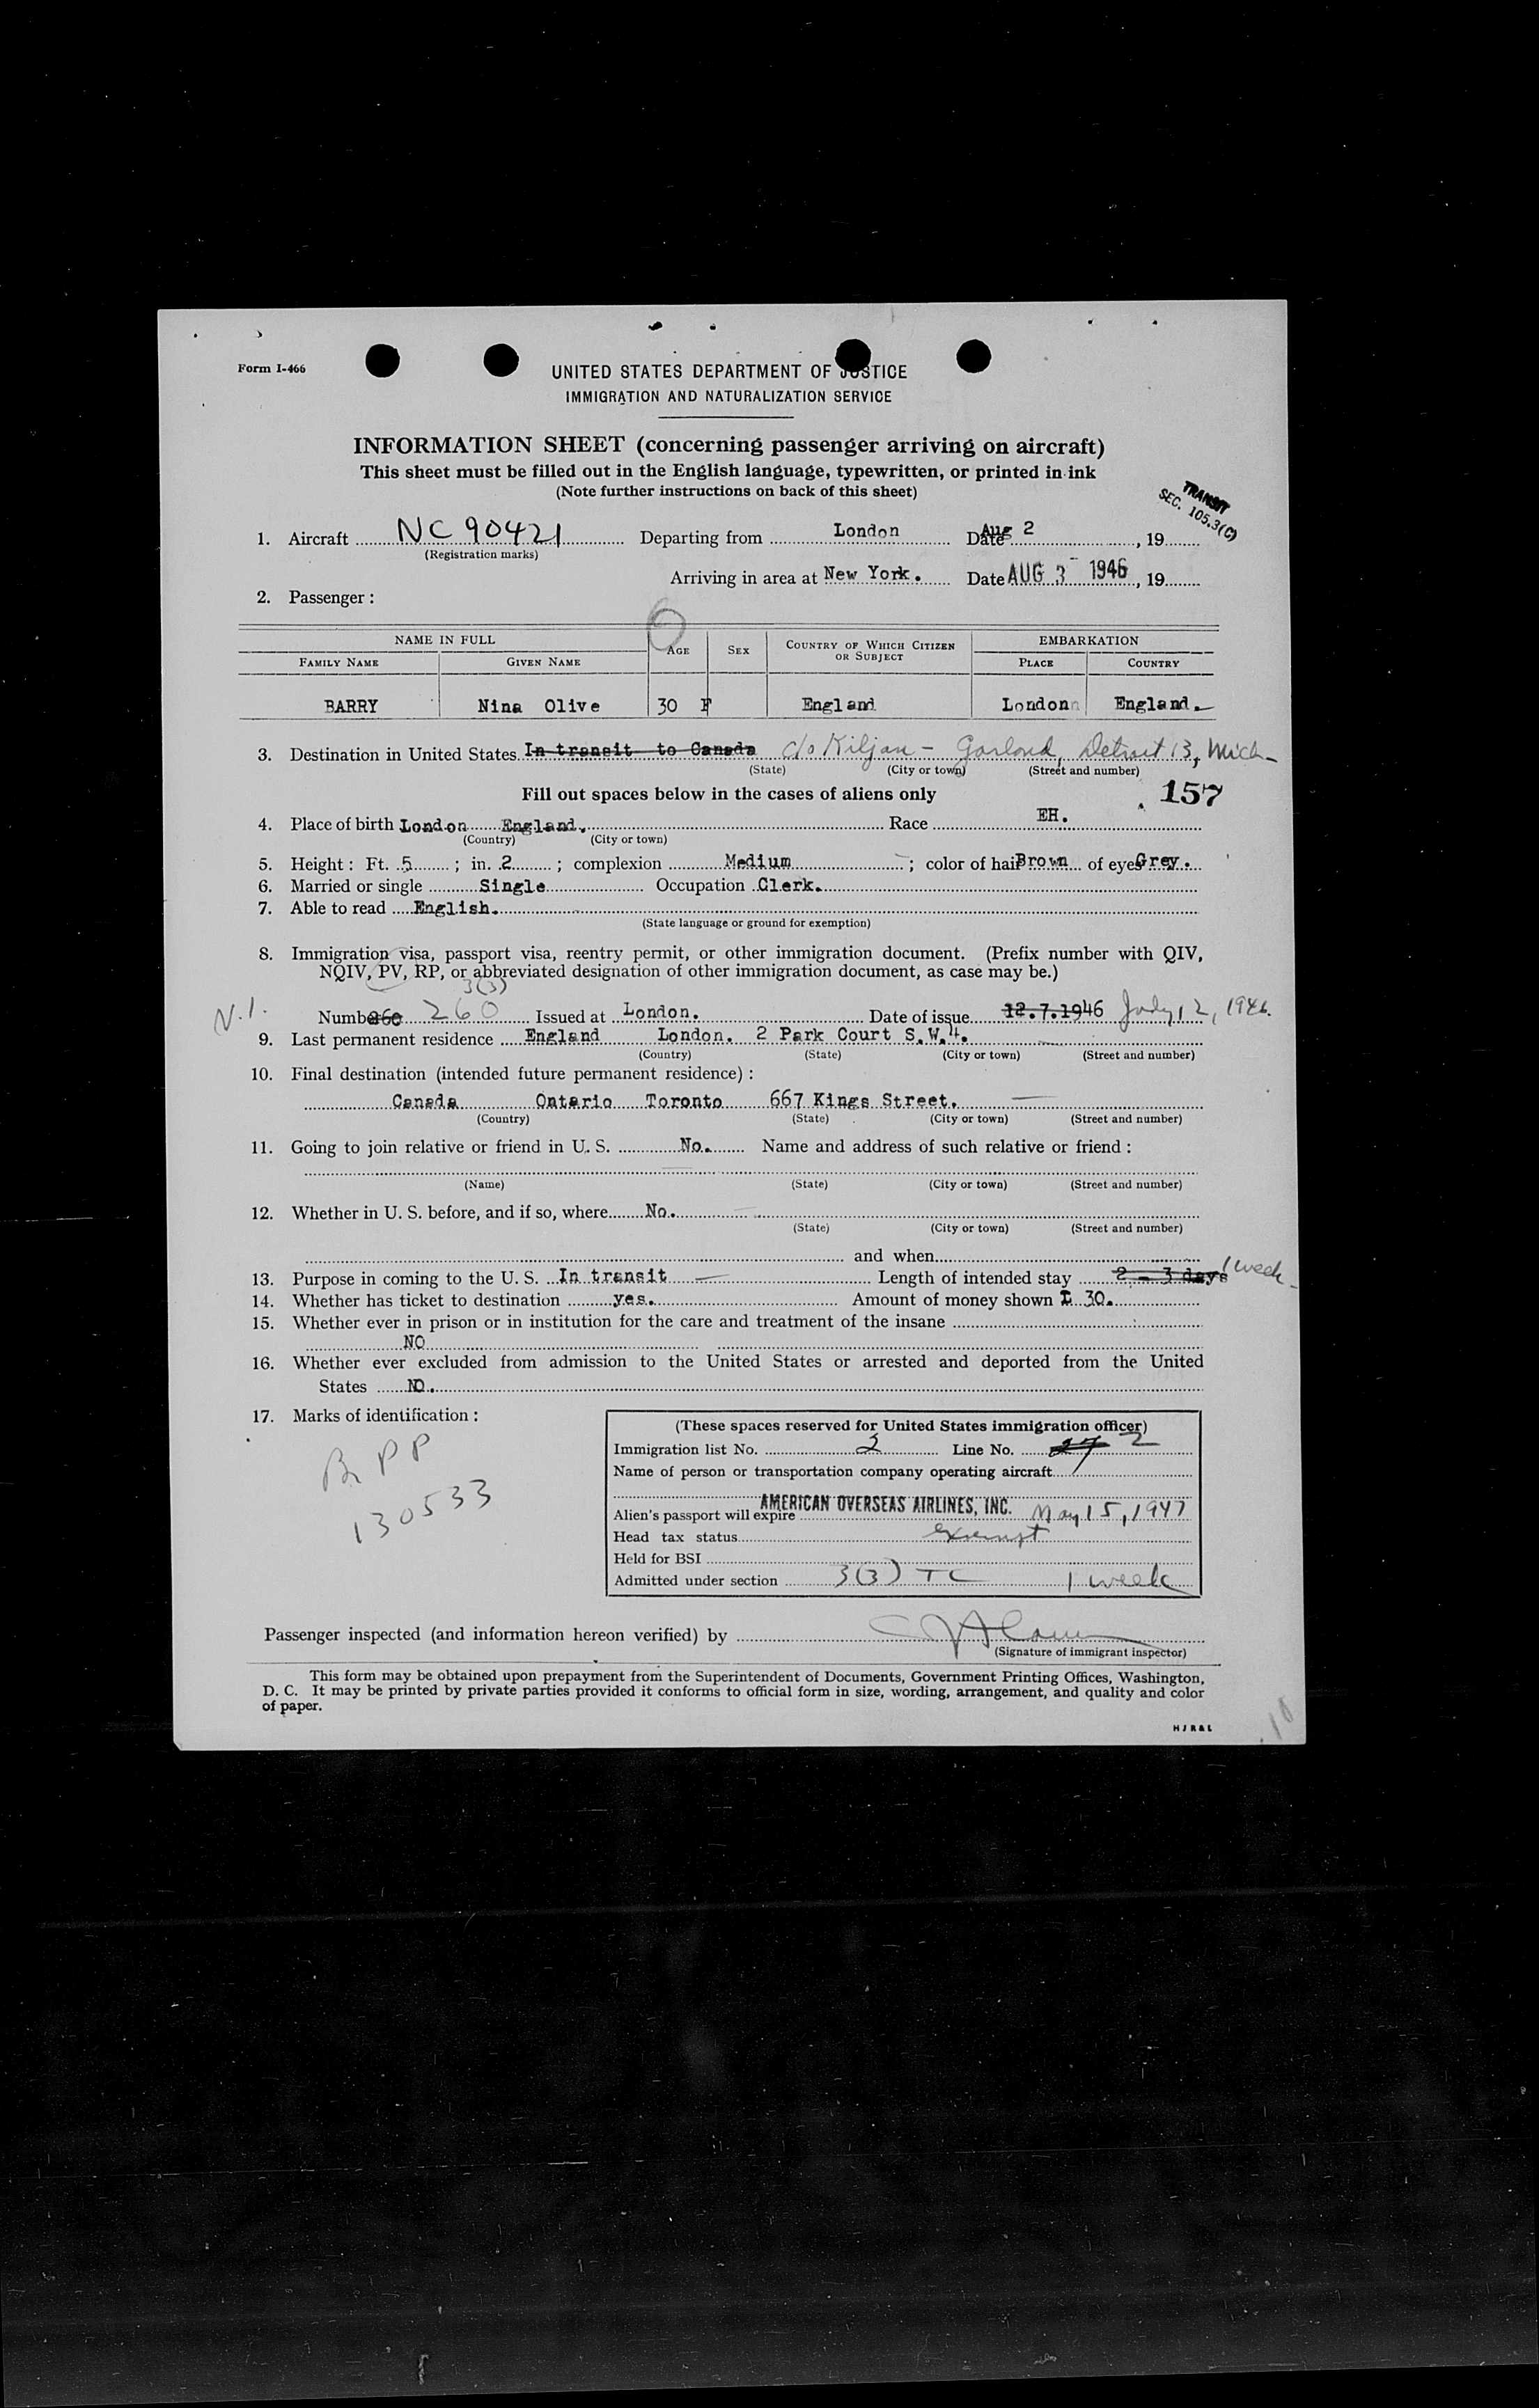 Form I-466
UNITED STATES DEPARTMENT OF JUSTICE
IMMIGRATION AND NATURALIZATION SERVICE
INFORMATION SHEET (concerning passenger arriving on aircraft)
This sheet must be filled out in the English language, typewritten, or printed in ink
(Note further instructions on back of this sheet)
TRANSIT
SEC. 105.3(C)
1. Aircraft NC 90421 Departing from London Date Aug 2, 19
(Registration marks)
Arriving in area at New York. Date AUG 3 - 1946, 19
2. Passenger:
NAME IN FULL AGE SEX COUNTRY OF WHICH CITIZEN OR SUBJECT EMBARKATION
FAMILY NAME GIVEN NAME PLACE COUNTRY
BARRY Nina Olive 30 F England London England.
3. Destination in United States In transit to Canada c/o Kiljan - Garland, Detroit 13, Mich-
(State) (City or town) (Street and number)
Fill out spaces below in the cases of aliens only 157
4. Place of birth London England. Race EH.
(Country) (City or town)
5. Height: Ft. 5; in. 2; complexion Medium; color of hair Brown of eyes Grey.
6. Married or single Single Occupation Clerk.
7. Able to read English.
(State language or ground for exemption)
8. Immigration visa, passport visa, reentry permit, or other immigration document. (Prefix number with QIV,
NQIV, PV, RP, or abbreviated designation of other immigration document, as case may be.)
3(3)
V.I. Number 260 260 Issued at London. Date of issue 12.7.1946 July 12, 1946.
9. Last permanent residence England London. 2 Park Court S.W.4.
(Country) (State) (City or town) (Street and number)
10. Final destination (intended future permanent residence):
Canada Ontario Toronto 667 Kings Street.
(Country) (State) (City or town) (Street and number)
11. Going to join relative or friend in U. S. No. Name and address of such relative or friend:
(Name) (State) (City or town) (Street and number)
12. Whether in U. S. before, and if so, where No.
(State) (City or town) (Street and number)
and when
13. Purpose in coming to the U. S. In transit Length of intended stay 2 - 3 days 1 week
14. Whether has ticket to destination yes. Amount of money shown £ 30.
15. Whether ever in prison or in institution for the care and treatment of the insane
NO
16. Whether ever excluded from admission to the United States or arrested and deported from the United
States NO.
17. Marks of identification:
Br PP
130533
(These spaces reserved for United States immigration officer)
Immigration list No. 2 Line No. 27 2
Name of person or transportation company operating aircraft
AMERICAN OVERSEAS AIRLINES, INC.
Alien's passport will expire May 15, 1947
Head tax status exempt
Held for BSI
Admitted under section 3(3) TC 1 week
Passenger inspected (and information hereon verified) by
(Signature of immigrant inspector)
This form may be obtained upon prepayment from the Superintendent of Documents, Government Printing Offices, Washington,
D. C. It may be printed by private parties provided it conforms to official form in size, wording, arrangement, and quality and color
of paper.
H J R & L
10